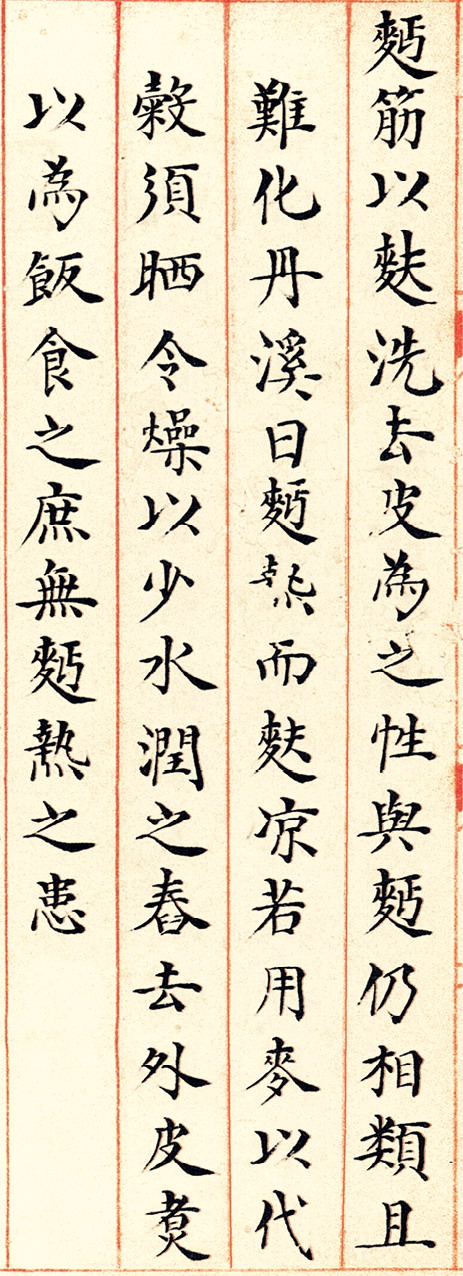 麪筋以麩洗去皮為之性與麪仍相類且
難化丹溪曰麪熱而麩凉若用麥以代
穀須晒令燥以少水潤之舂去外皮煑
以為飯食之庶無麪熱之患